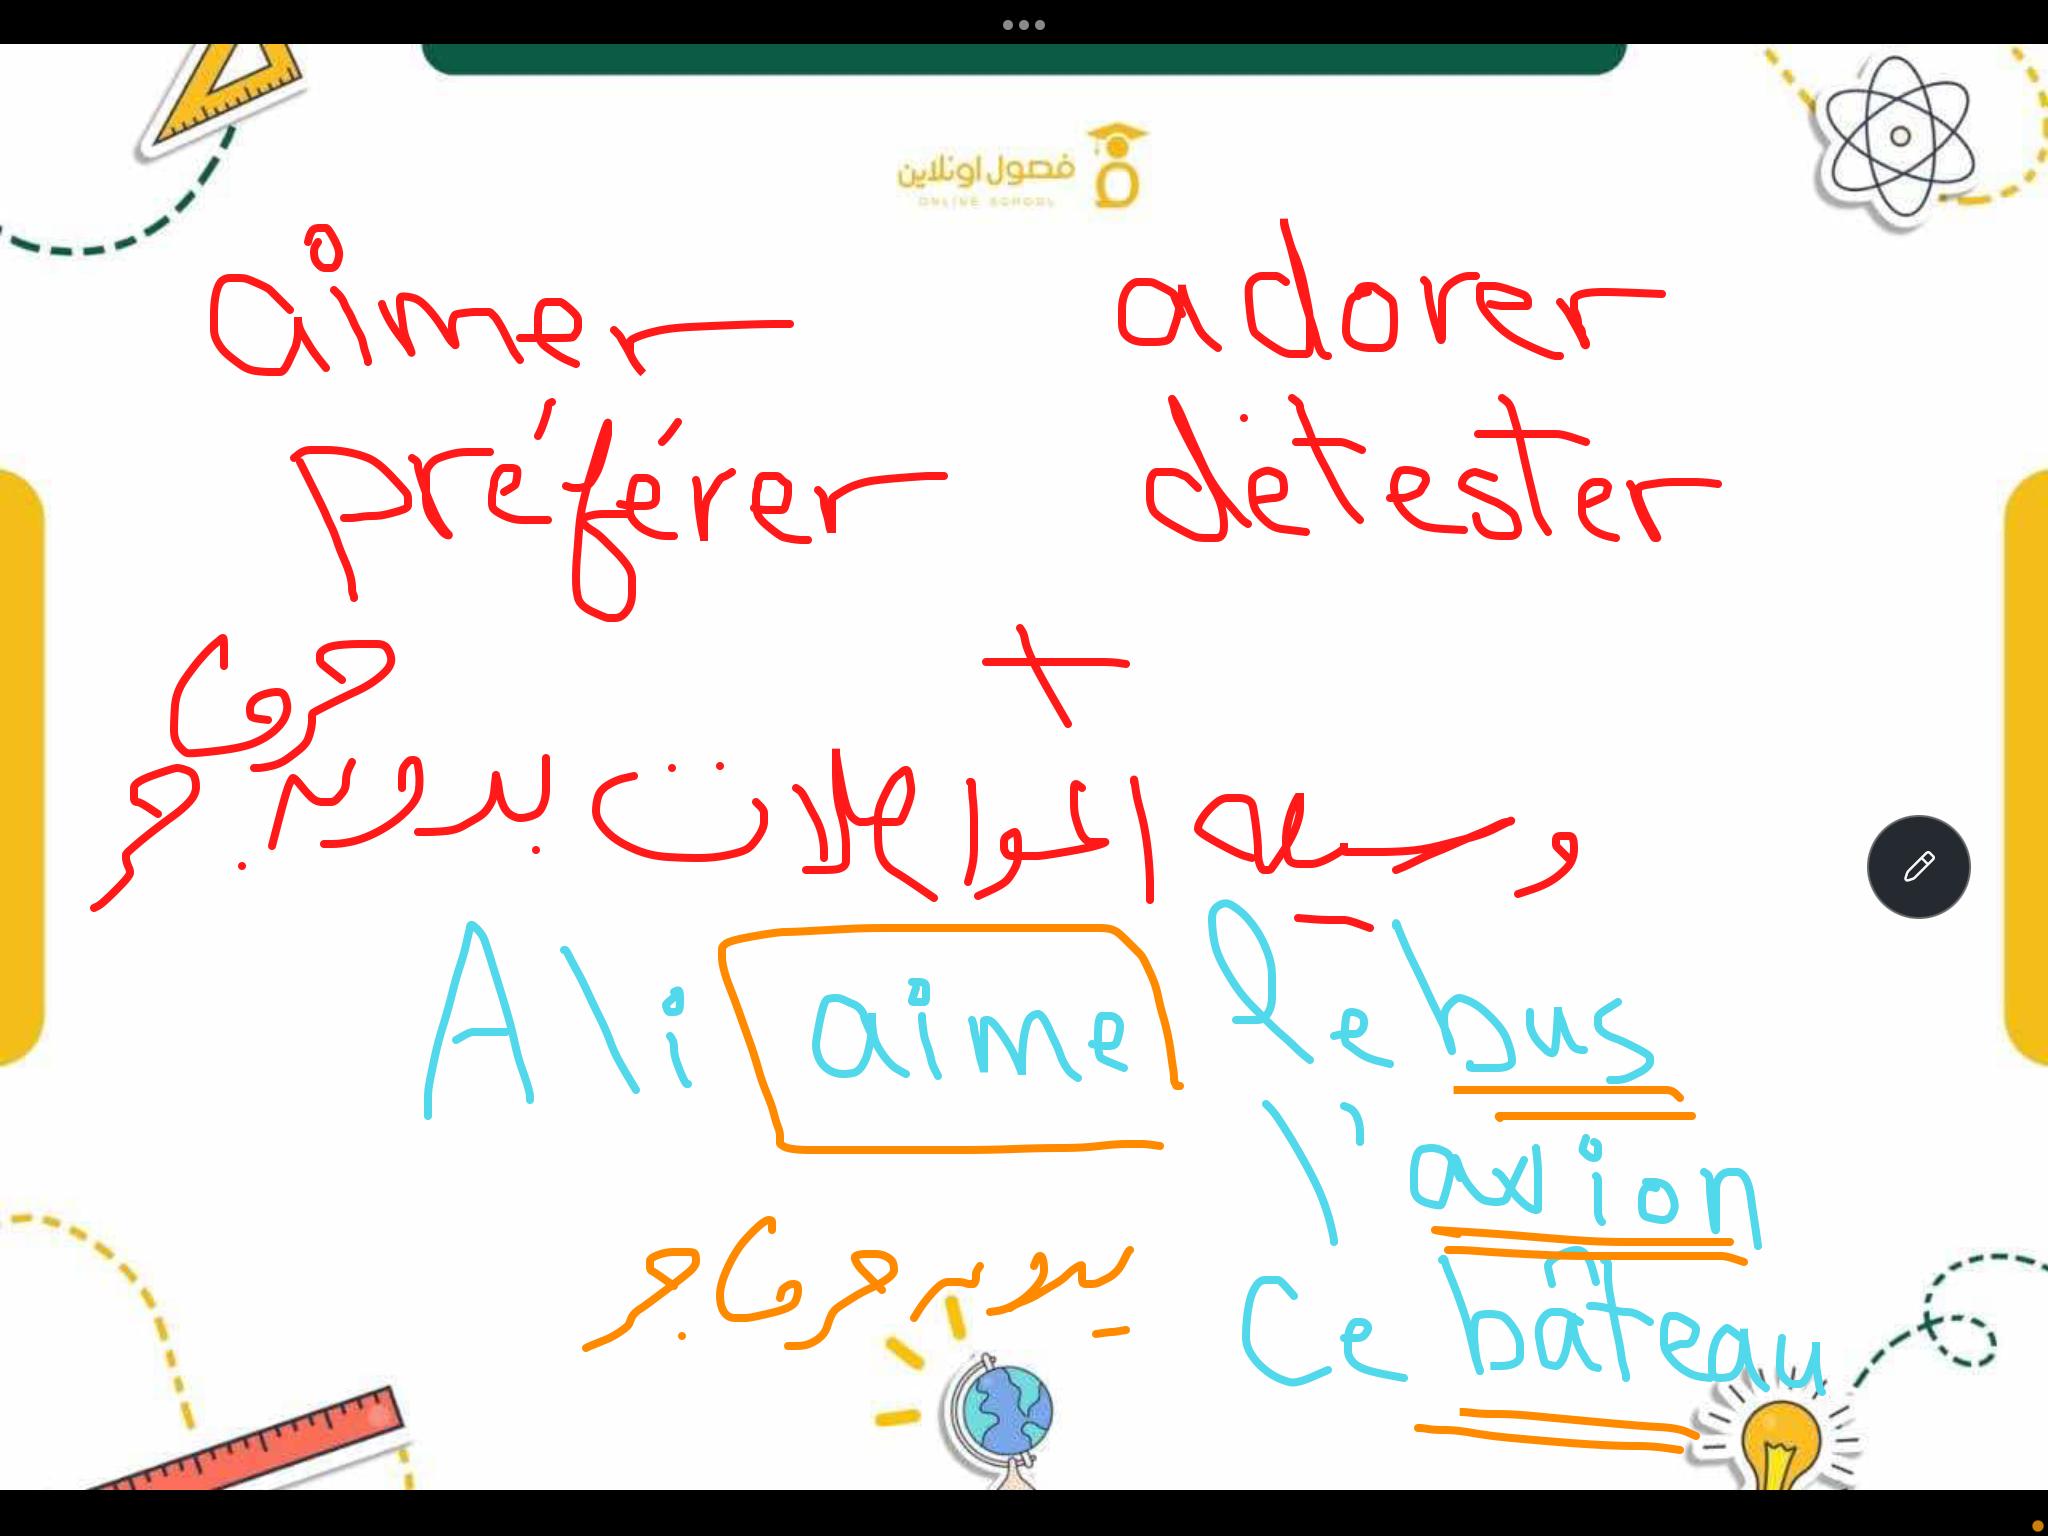 فصول اونلاين
ONLINE SCHOOL
aimer adorer
préférer détester
+
وسيله المواصلات بدون حرف جر
Ali aime le bus
l'avion
ce bâteau
بدون حرف جر